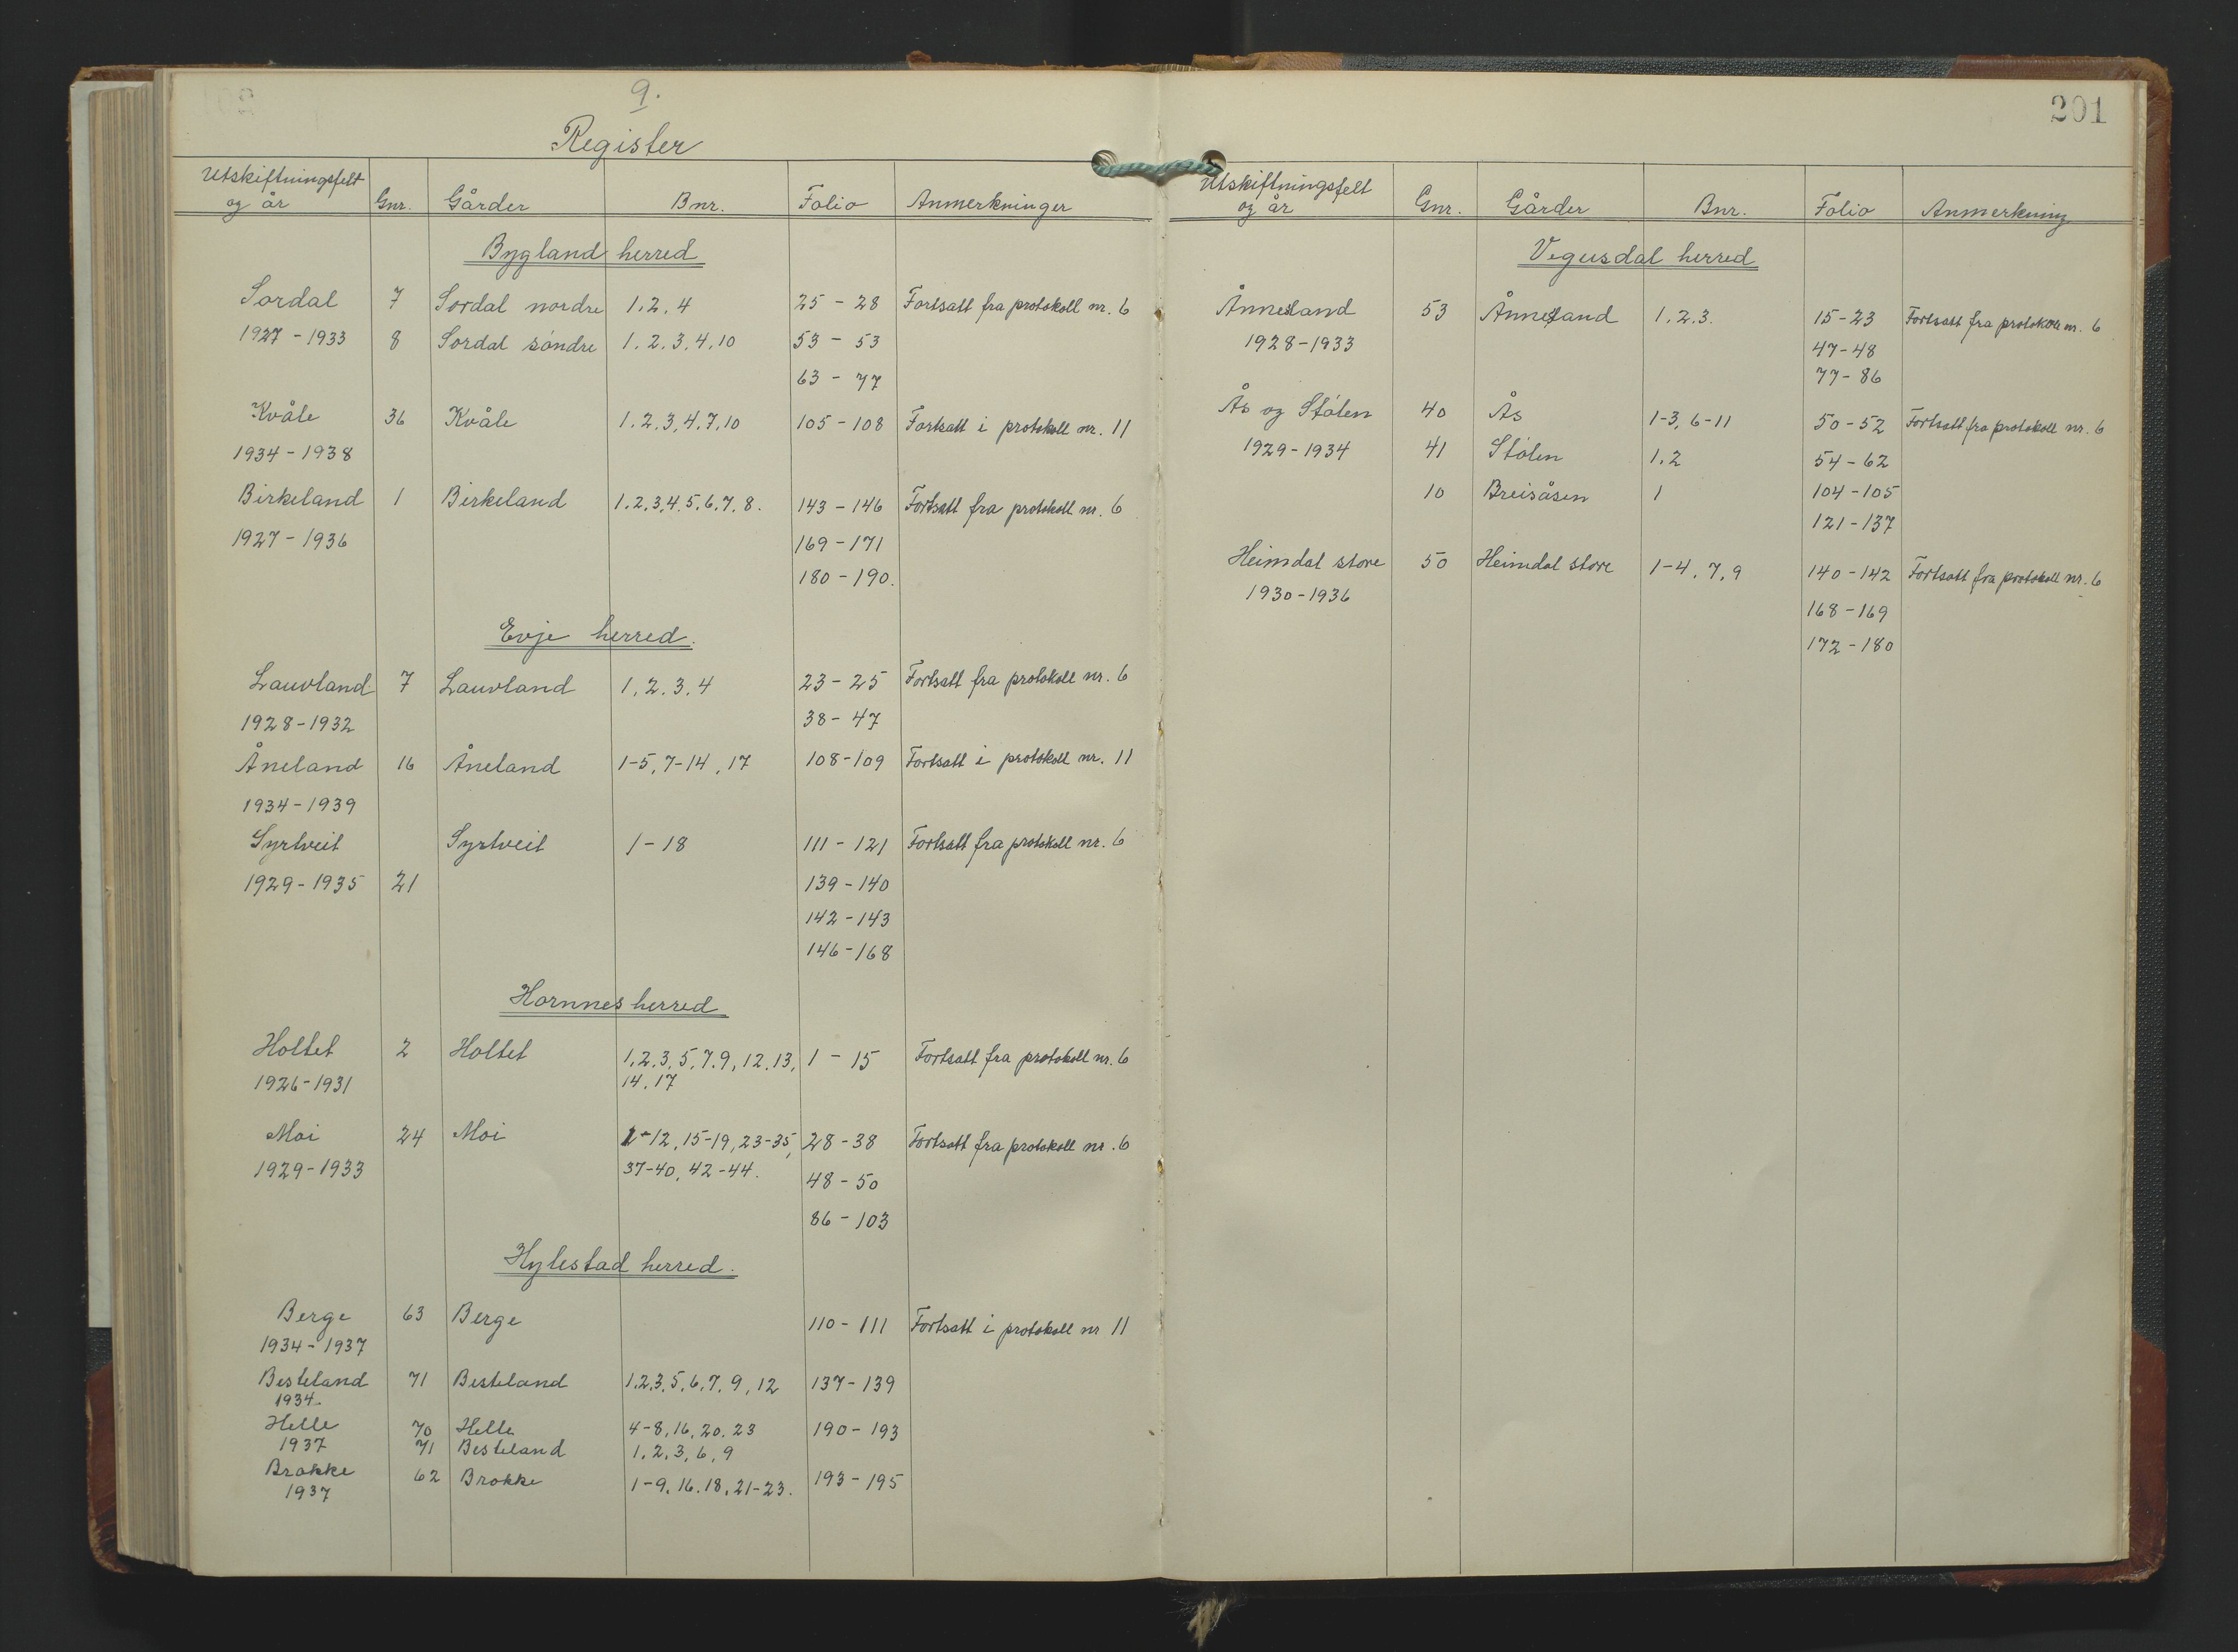 9.
Register
Utskiftningsfelt og år Gnr. Gårder Bnr. Folio Anmerkninger
Bygland herred
Sordal 7 Sordal nordre 1.2.4 25 - 28 Fortsatt fra protokoll nr. 6
1927 - 1933 8 Sordal søndre 1.2.3.4.10 53 - 53
63 - 77
Kvåle 36 Kvåle 1.2.3.4.7.10 105 - 108 Fortsatt i protokoll nr. 11
1934 - 1938
Birkeland 1 Birkeland 1.2.3.4.5.6.7.8. 143 - 146 Fortsatt fra protokoll nr. 6
1927 - 1936 169 - 171
180 - 190.
Evje herred.
Lauvland 7 Lauvland 1.2.3.4 23 - 25 Fortsatt fra protokoll nr. 6
1928 - 1932 38 - 47
Åneland 16 Åneland 1-5, 7-14, 17 108 - 109 Fortsatt i protokoll nr. 11
1934 - 1939
Syrtveit Syrtveit 1 - 18 111 - 121 Fortsatt fra protokoll nr. 6
1929 - 1935 21 139 - 140
142 - 143
146 - 168
Hornnes herred
Holtet 2 Holtet 1.2.3.5.7.9, 12.13, 1 - 15 Fortsatt fra protokoll nr. 6
1926 - 1931 14.17
Moi 24 Moi 1-12, 15-19, 23-35, 28 - 38 Fortsatt fra protokoll nr. 6
1929 - 1933 37-40, 42-44. 48 - 50
86 - 103
Hylestad herred.
Berge 63 Berge 110 - 111 Fortsatt i protokoll nr 11
1934 - 1937
Besteland 71 Besteland 1.2.3.5.6.7.9, 12 137 - 139
1934.
Helle 70 Helle 4-8, 16, 20. 23 190 - 193
1937 71 Besteland 1.2.3, 6, 9
Brokke 62 Brokke 1-9. 16. 18, 21-23. 193 - 195
1937
201
Utskiftningsfelt og år Gnr. Gårder Bnr. Folio Anmerkning
Vegusdal herred
Ånneland 53 Ånneland 1.2.3. 15 - 23 Fortsatt fra protokoll nr. 6
1928 - 1933 47 - 48
77 - 86
Ås og Stølen 40 Ås 1-3, 6-11 50 - 52 Fortsatt fra protokoll nr. 6
1929 - 1934 41 Stølen 1.2 54 - 62
10 Breisåsen 1 104 - 105
121 - 137
Heimdal store 50 Heimdal store 1-4, 7, 9 140 - 142 Fortsatt fra protokoll nr. 6
1930 - 1936 168 - 169
172 - 180